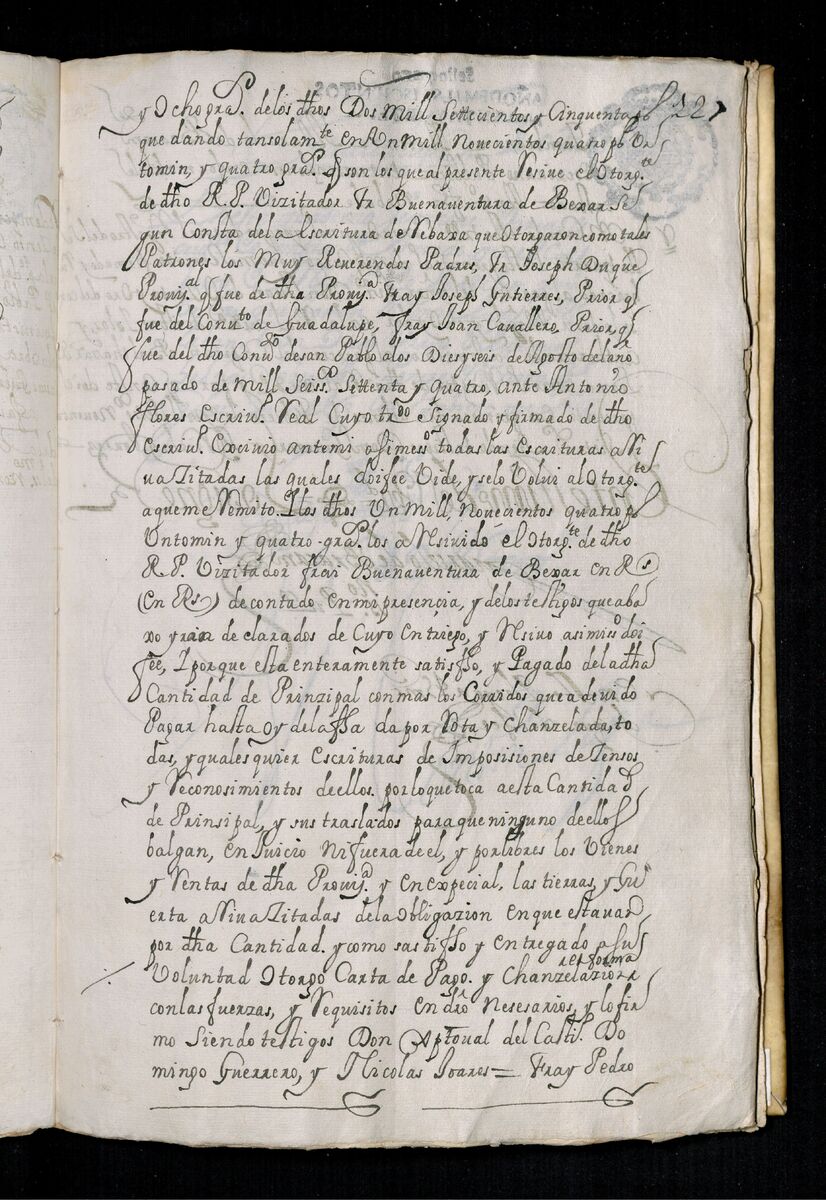 y Ocho gras. de los dhos Dos Mill Settecientos y Cinquenta pos 127
que dando tansolamte en Un Mill Novecientos quatro ps Un
tomin, y quatro gras. q son los que al presente Resive el Otorgte
de dho R. P. Vizitador Fr Buenaventura de Bexar Se
gun Consta dela Escritura de Rebaxa que Otorgaron como tales
Patrones los Muy Reverendos Padres, Fr Joseph Duque
Provyal q fue de dha Provya Fray Joseph Gutierres, Prior q
fue del Convto de Guadalupe, Fray Joan Cavallero, Prior q
fue del dho Convto de san Pablo a los Diesyseis de Agosto del año
pasado de Mill Seisso Settenta y quatro, ante Antonio
Flores Escrivo Real Cuyo trdo Signado y firmado de dho
Escrivo Excivio antemi asimesso todas las Escrituras arri
va Zitadas las quales doi fee Vide, y selo Volvi al Otorgte
aqueme Remito. Ylos dhos Un Mill, Novecientos quatro ps
Untomin y quatro gras los a Resivido el Otorgte de dho
R. P. Vizitador frai Buenaventura de Bexar en Rs
(en Rs) de contado en mi presencia, y delos testigos que aba
xo yran de clarados de Cuyo Entriego, y Resivo asimisso doi
fee, Y porque esta enteramente satisffo, y Pagado dela dha
Cantidad de Prinzipal con mas los Corridos que a devido
Pagar hasta Oy dela ffa da por Rota y Chanzelada, to
das, y quales quier Escrituras de Imposisiones de Zensos
y Reconosimientos de ellos. por lo que toca a esta Cantidad
de Prinsipal, y sus traslados para que ninguno de ellos
balgan, en Juicio Ni fuera de el, y por libres los Vienes
y Rentas de dha Provya. y en expecial, las tierras, y Gu
erta arriva Zitadas dela Obligazion en que estavan
por dha Cantidad. y como sastisffo y entregado a su
en forma
Voluntad Otorgo Carta de Pago. y Chanzelazion
con las fuerzas, y Requisitos en dro Nesesarios, y lo fir
mo Siendo testigos Don Xptoval del Castilo Do
mingo Guerrero, y Nicolas Joares = Fray Pedro